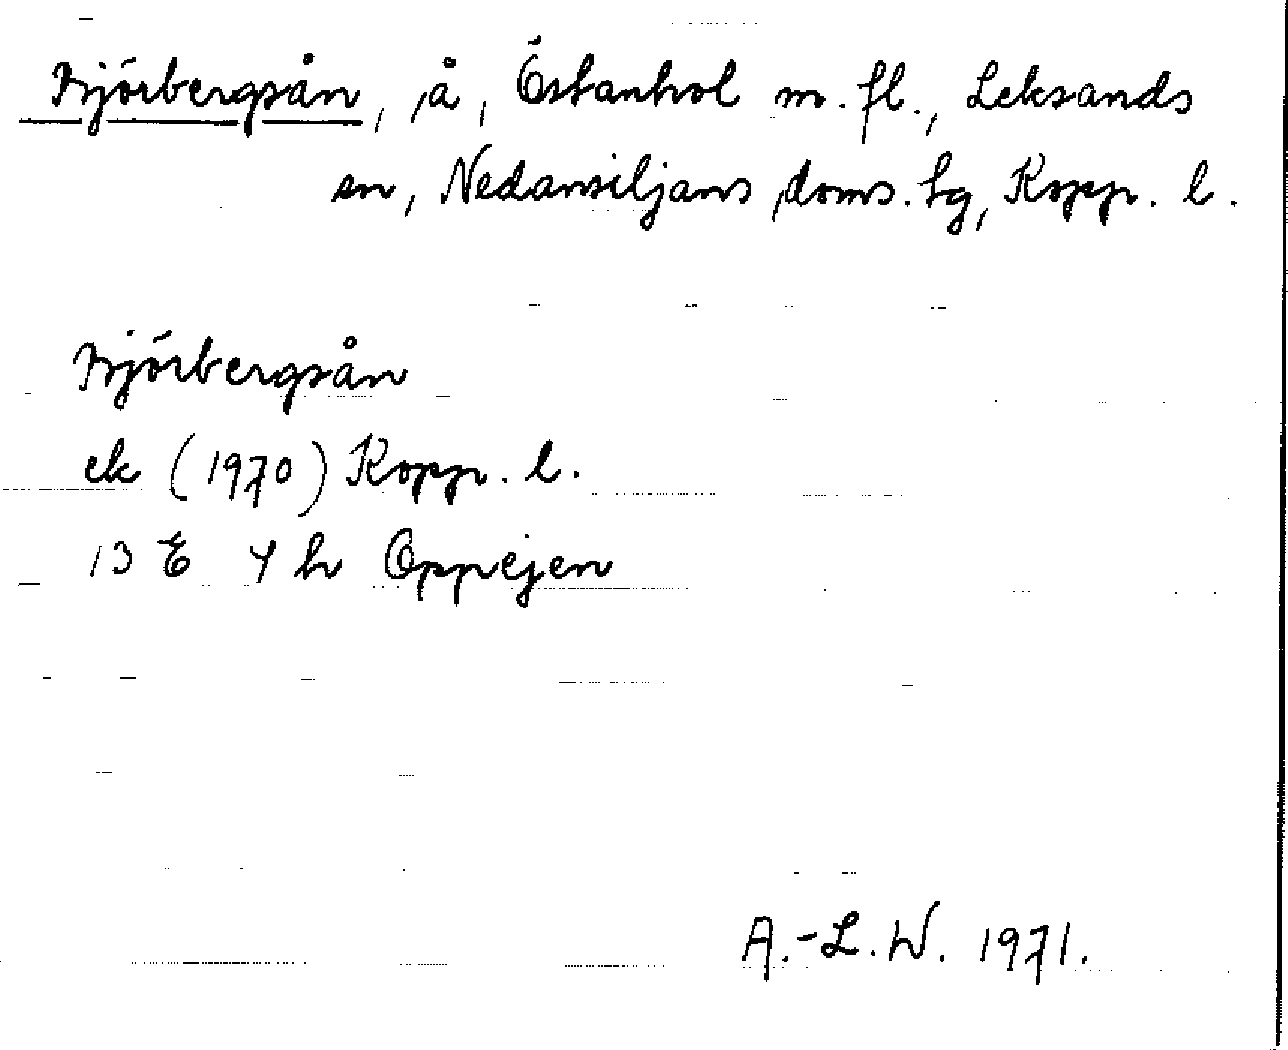 Björbergsån, å, Östanhol m. fl., Leksands
sn, Nedansiljans doms. hg, Kopp. l.
Björbergsån
ek (1970) Kopp. l.
13 E 4 h Oppejen
A.-L. W. 1971.